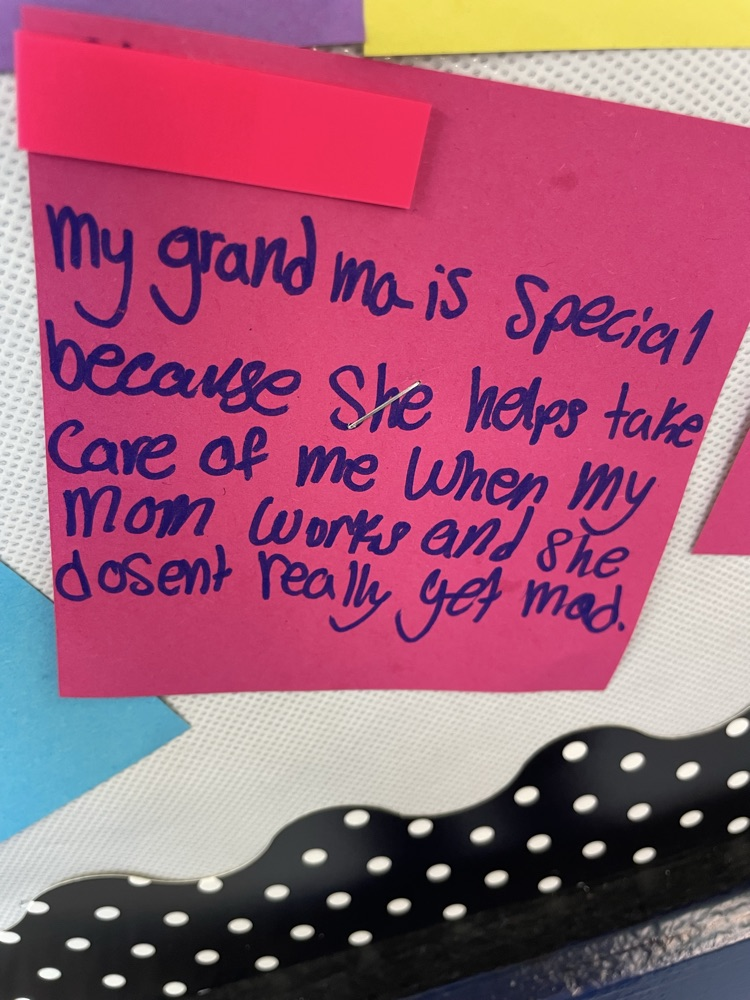 my grand ma is special
because she helps take
care of me when my
mom works and she
dosent really get mad.